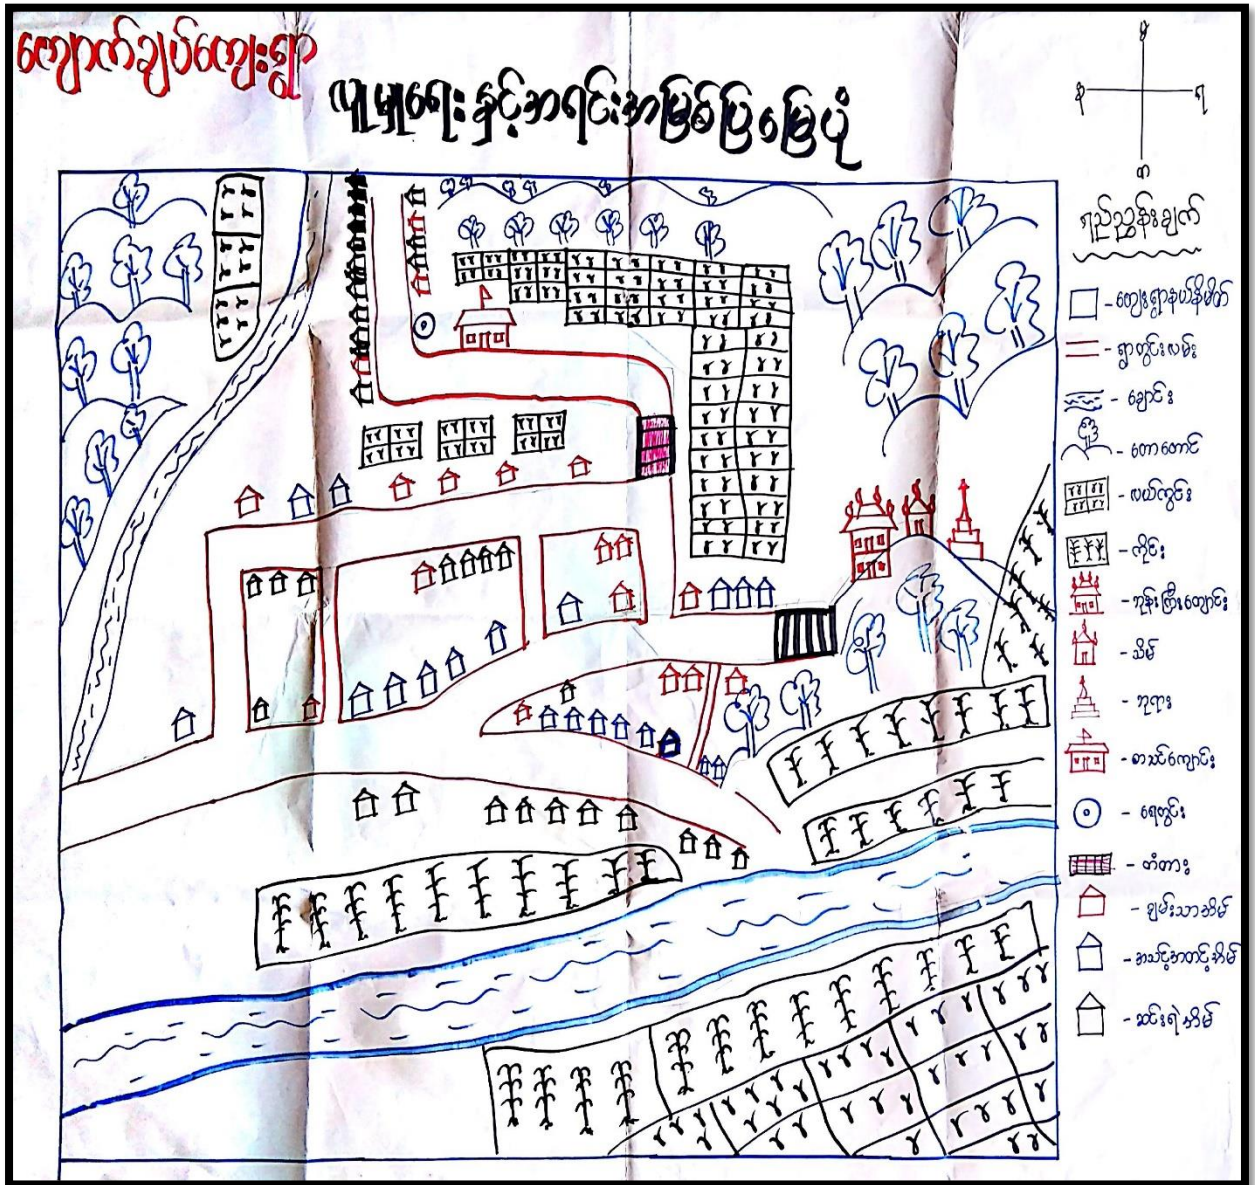 ကျောက်ချပ်ကျေးရွာ
လူမှုရေးနှင့်အရင်းအမြစ်ပြမြေပုံ
မ
နှ
ရ
တ
ရည်ညွှန်းချက်
- ကျေးရွာနယ်နိမိတ်
- ရွာတွင်းလမ်း
- ချောင်း
- တောတောင်
- လယ်ကွင်း
- ကိုင်း
- ဘုန်းကြီးကျောင်း
- သိမ်
- ဘုရား
- စာသင်ကျောင်း
- ရေတွင်း
- တံတား
- ချမ်းသာအိမ်
- အသင့်အတင့်အိမ်
- ဆင်းရဲအိမ်